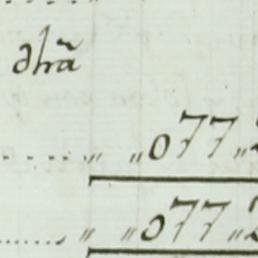 dhã
........ „ „077„2
........ „ „077„2